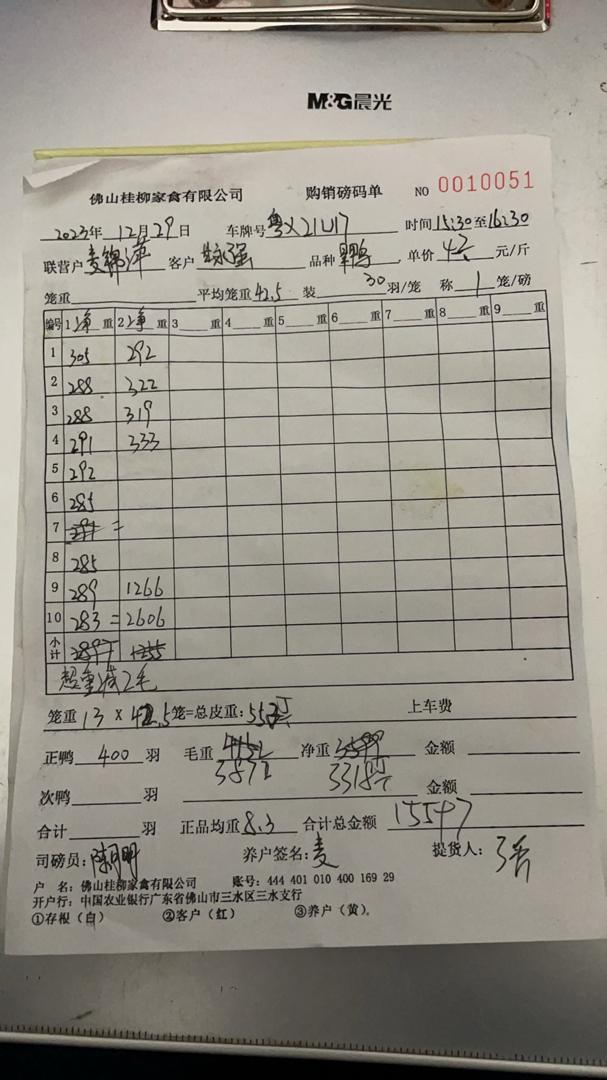 M&G晨光
佛山桂柳家禽有限公司 购销磅码单 NO 0010051
2023年 12月29日 车牌号 粤X21U17 时间15:30至16:30
联营户 麦锦萍 客户 强 品种 单价 元/斤
笼重 平均笼重42.5 装 30 羽/笼 称 1 笼/磅
编号 1 净 重 2 净 重 3 重 4 重 5 重 6 重 7 重 8 重 9 重
1 305 292
2 288 322
3 288 319
4 291 333
5 292
6 285
7 =
8 285
9 289 1266
10 283 = 2606
小计
超重减2毛
笼重 13 X 42.5笼=总皮重: 上车费
正鸭 400 羽 毛重 净重 金额
3872 3318
次鸭 羽 金额
合计 羽 正品均重 8.3 合计总金额 15547
司磅员: 陈月明 养户签名: 麦 提货人:
户 名: 佛山桂柳家禽有限公司 账号: 444 401 010 400 169 29
开户行: 中国农业银行广东省佛山市三水区三水支行
①存根(白) ②客户(红) ③养户(黄)。